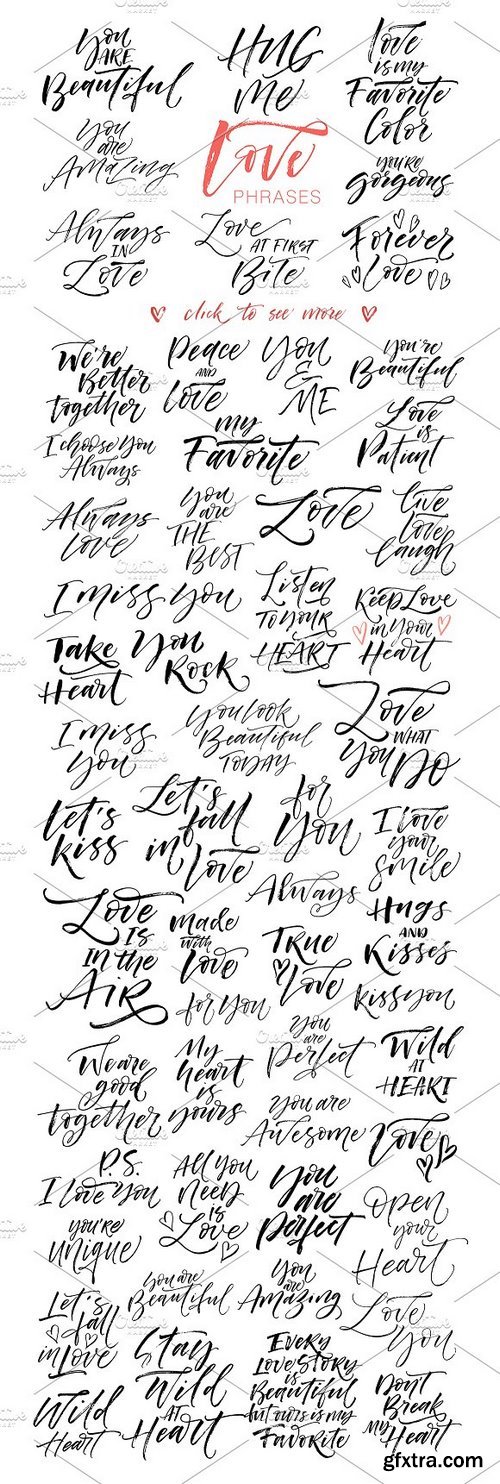 You
ARE
Beautiful
HUG
Me
love
is my
Favorite
Color
You
are
Amazing
Love
PHRASES
you're
gorgeous
Always
IN
Love
Love
AT FIRST
Bite
Forever
Love
click to see more
We're
Better
together
Peace
AND
Love
You
&
ME
You're
Beautiful
I choose You
Always
my
Favorite
Love
is
Patiunt
Always
love
You
are
THE
BEST
Love
live
love
laugh
I miss you
Listen
TO YOUR
HEART
Keep Love
in your
Heart
Take
Heart
You
Rock
I miss
you
You look
Beautiful
TODAY
Love
WHAT
You DO
Let's
kiss
Let's
fall
in
love
for
You
I love
your
smile
Always
Love
IS
IN the
AIR
made
with
love
for You
TRUE
Love
Hugs
AND
Kisses
kiss you
You
are
Perfect
Wild
AT
HEART
We are
good
together
My
heart
is
yours
You are
Awesome
Love
P.S.
I love You
All you
NEED
IS
Love
You
are
perfect
Open
your
Heart
you're
unique
You are
Beautiful
You
are
Amazing
Love
You
Let's
fall
in Love
Stay
Wild
AT
Heart
Every
Love Story
is
Beautiful
but ours is my
Favorite
Don't
Break
My
Heart
Wild
Heart
gfxtra.com